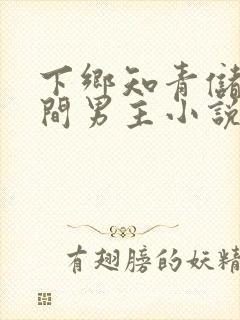 下鄉知青儲
間男主小說
有翅膀的妖精